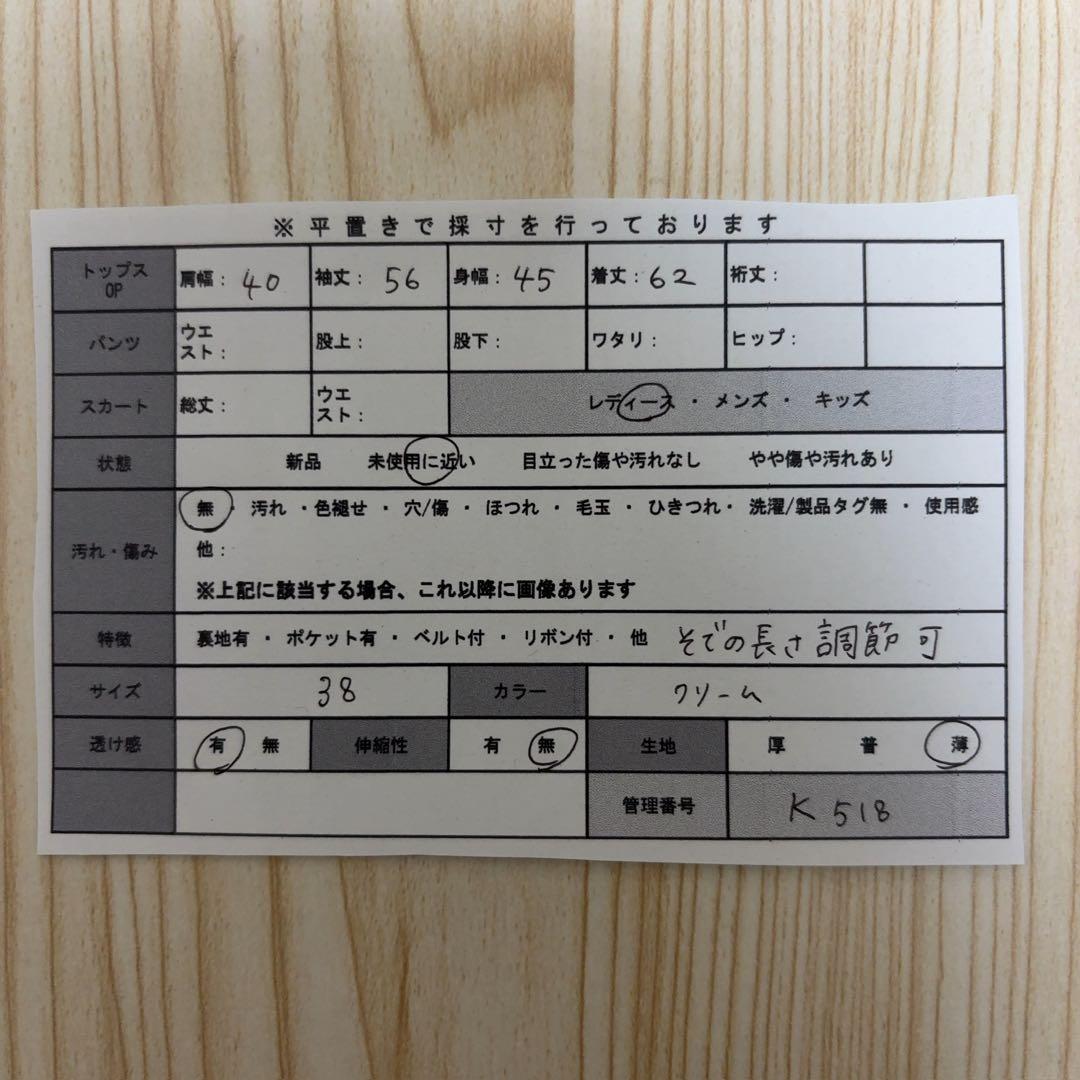 ※平置きで採寸を行っております
トップス OP 肩幅：40 袖丈：56 身幅：45 着丈：62 裄丈：
パンツ ウエスト： 股上： 股下： ワタリ： ヒップ：
スカート 総丈： ウエスト： レディース ・ メンズ ・ キッズ
状態 新品 未使用に近い 目立った傷や汚れなし やや傷や汚れあり
汚れ・傷み 無 ・ 汚れ ・色褪せ ・ 穴/傷 ・ ほつれ ・ 毛玉 ・ ひきつれ・ 洗濯/製品タグ無 ・ 使用感
他：
※上記に該当する場合、これ以降に画像あります
特徴 裏地有 ・ ポケット有 ・ ベルト付 ・ リボン付 ・ 他 そでの長さ調節可
サイズ 38 カラー クリーム
透け感 有 無 伸縮性 有 無 生地 厚 普 薄
管理番号 K518